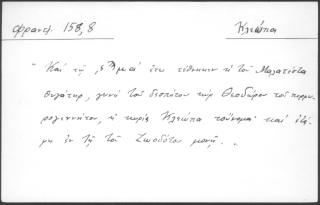 Φραντζ. 158,8
Κλεώπα
"Καὶ τῷ Ϛλμαῳ ἔτει τέθνηκεν ἡ τοῦ Μαλατέστα
θυγάτηρ, γυνὴ τοῦ δεσπότου κὺρ Θεοδώρου τοῦ πορφυ-
ρογεννήτου, ἡ κυρία Κλεώπα τοὔνομα· καὶ ἐτά-
φη ἐν τῇ τοῦ Ζωοδότου μονῇ. "